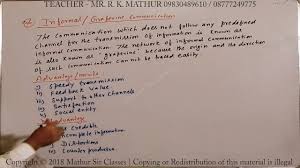 TEACHER - MR. R. K. MATHUR 09830489610 / 08777249775
Informal / Grapevine Communication
The Communication which does not follow any predefined
channel for the transmission of information is known as
informal communication. The network of informal communication
is also known as "Grapevine" because the origin and the direction
of such communication can not be traced easily
Advantage/merits
i) Speedy transmission
ii) Feedback value
iii) Support to other channels
iv) Satisfaction
v) Social entity
Credible
Incomplete information
iii) Distortions
iv) Counter productive
Copyright © 2018 Mathur Sir Classes | Copying or Redistribution of this material is illegal